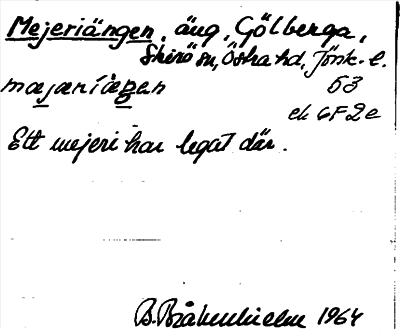 Mejeriängen, äng, Gölberga,
Skirö sn, Östra hd, Jönk. l.
mæjæríæŋen 53
ek 6F2e
Ett mejeri har legat där.
B. Bråkenhielm 1964